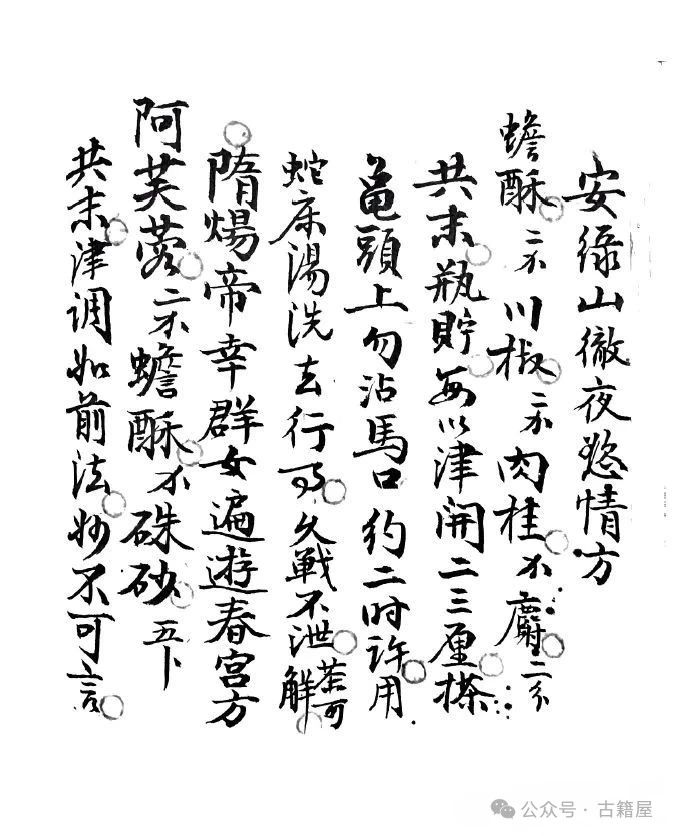 安綠山徹夜慾情方
蟾酥二不川椒二不肉桂不麝二分
共末瓶貯每以津開二三厘搽
龜頭上勿沾馬口約二时許用
蛇床湯洗去行事久戰不泄解茶可
隋煬帝幸群女遍遊春宮方
阿芙蓉二不蟾酥不硃砂五卜
共末津调如前法妙不可言
公众号·古籍屋